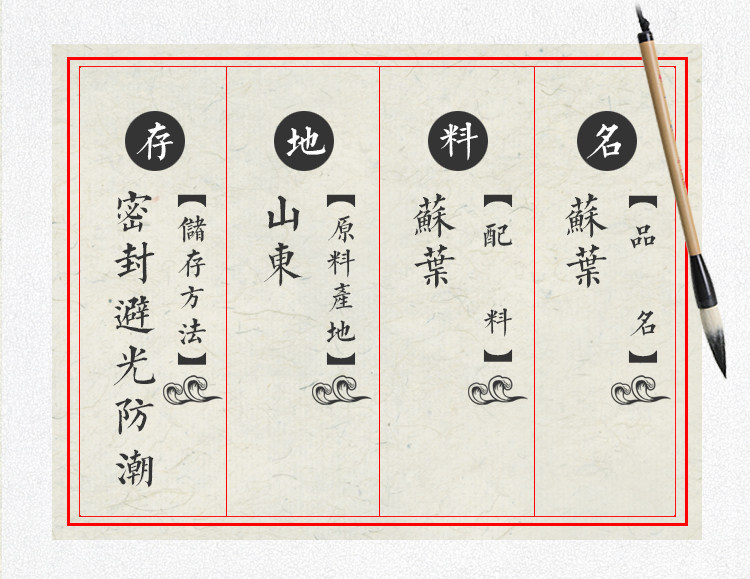 名
【品名】
蘇葉
料
【配料】
蘇葉
地
【原料產地】
山東
存
【儲存方法】
密封避光防潮